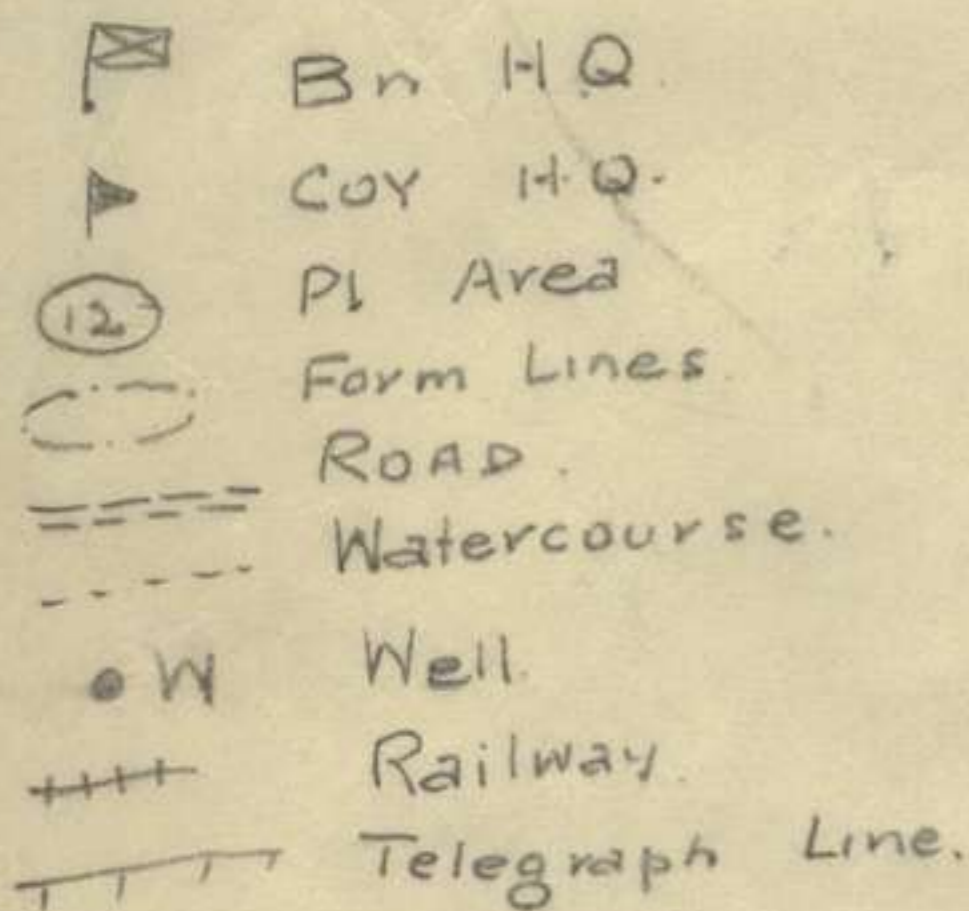 Bn HQ.
COY H.Q.
12 Pl Area
Form Lines.
ROAD.
Watercourse.
W Well.
Railway.
Telegraph Line.